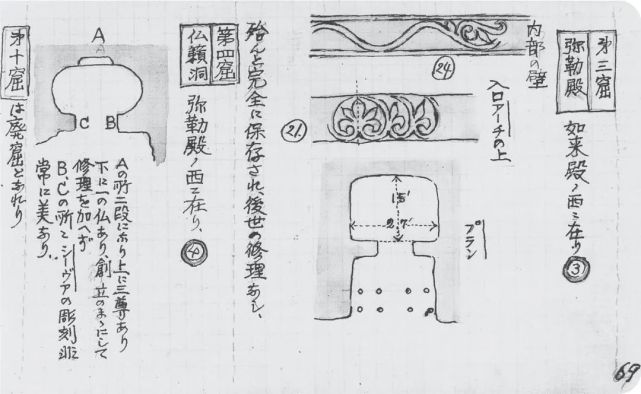 第三窟
弥勒殿
如来殿ノ西ニ在り
③
内部の壁
24
入口アーチの上
21
プラン
15'
27'
殆んど完全に保存され、後世の修理なし、
第四窟
仏籟洞
弥勒殿ノ西ニ在り、
④
A
C B
Aの所二段になり上に三尊あり
下に一の仏あり、創立のまゝにして
修理を加へず
B、Cの所にシーヴァの彫刻
常に美なり、
第十窟は廃窟となれり
69